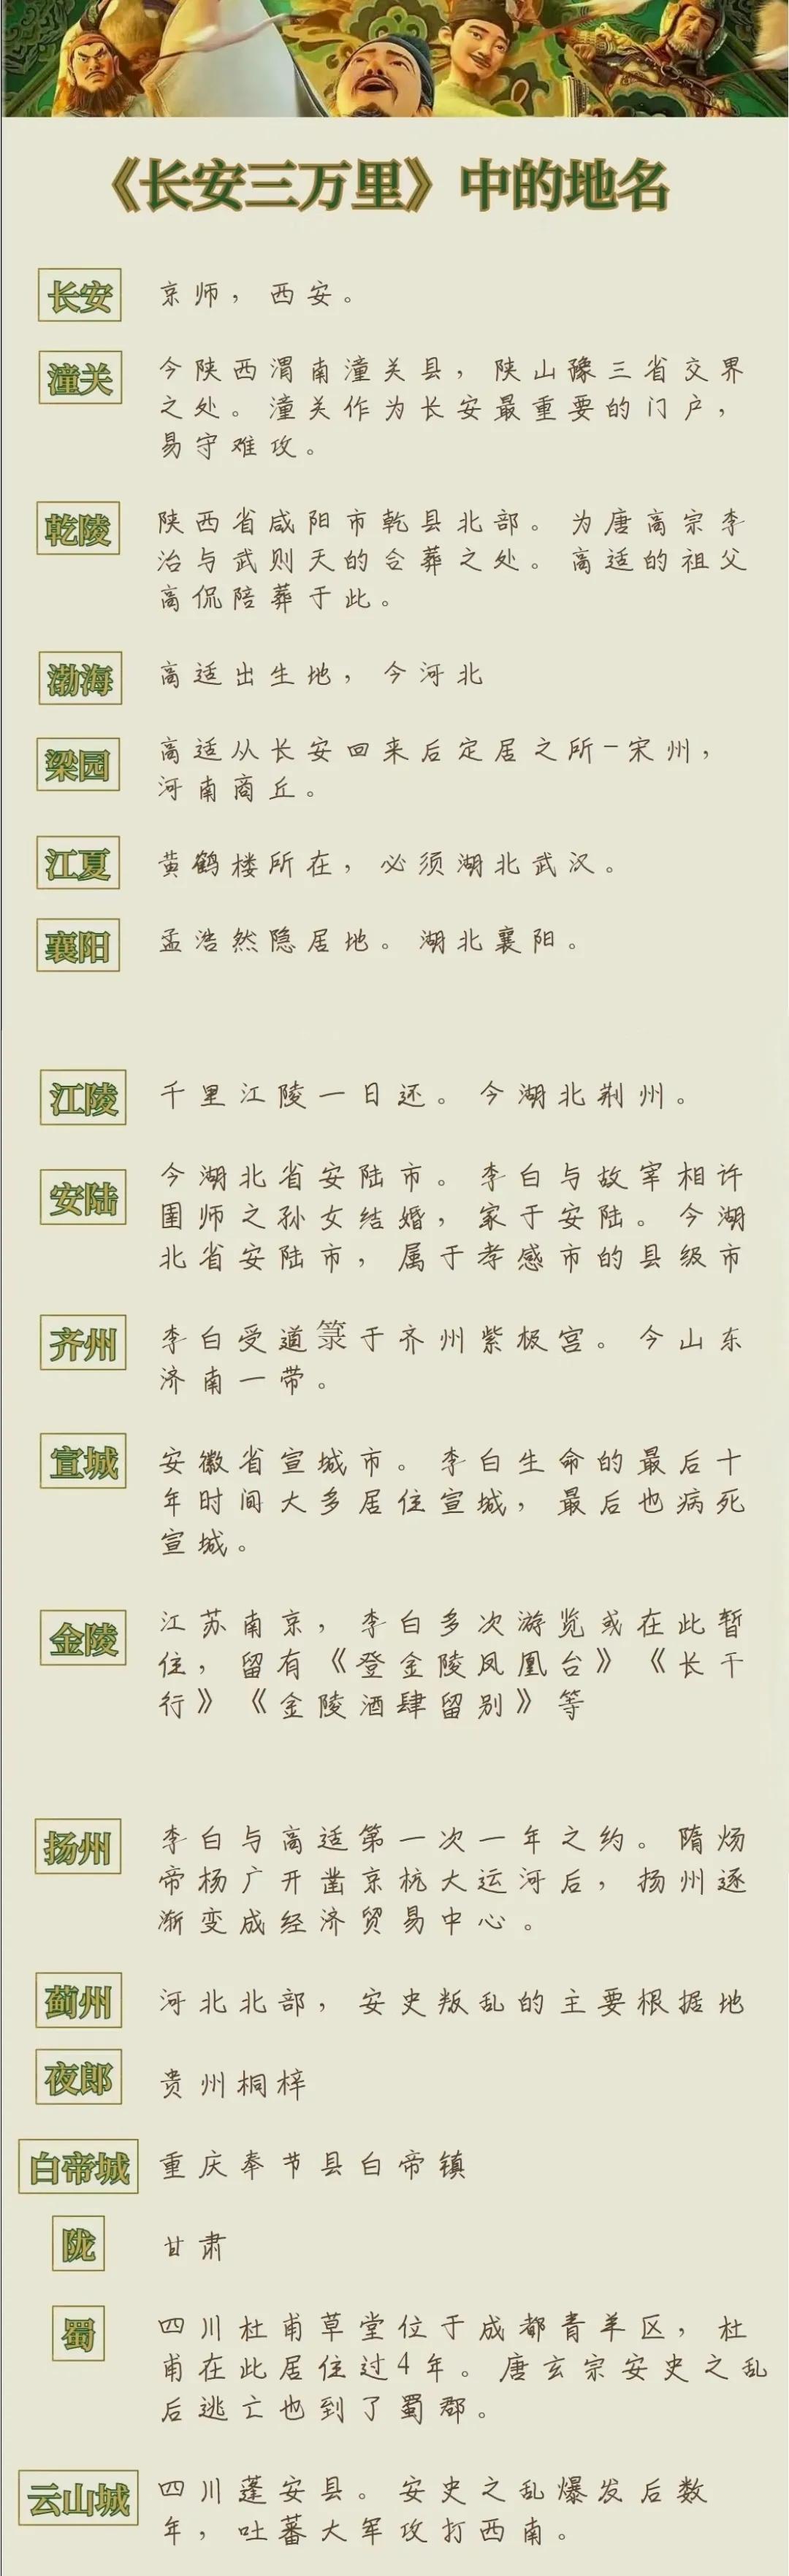 《长安三万里》中的地名
长安
京师，西安。
潼关
今陕西渭南潼关县，陕山豫三省交界
之处。潼关作为长安最重要的门户，
易守难攻。
乾陵
陕西省咸阳市乾县北部。为唐高宗李
治与武则天的合葬之处。高适的祖父
高侃陪葬于此。
渤海
高适出生地，今河北
梁园
高适从长安回来后定居之所-宋州，
河南商丘。
江夏
黄鹤楼所在，必须湖北武汉。
襄阳
孟浩然隐居地。湖北襄阳。
江陵
千里江陵一日还。今湖北荆州。
安陆
今湖北省安陆市。李白与故宰相许
圉师之孙女结婚，家于安陆。今湖
北省安陆市，属于孝感市的县级市
齐州
李白受道箓于齐州紫极宫。今山东
济南一带。
宣城
安徽省宣城市。李白生命的最后十
年时间大多居住宣城，最后也病死
宣城。
金陵
江苏南京，李白多次游览或在此暂
住，留有《登金陵凤凰台》《长干
行》《金陵酒肆留别》等
扬州
李白与高适第一次一年之约。隋炀
帝杨广开凿京杭大运河后，扬州逐
渐变成经济贸易中心。
蓟州
河北北部，安史叛乱的主要根据地
夜郎
贵州桐梓
白帝城
重庆奉节县白帝镇
陇
甘肃
蜀
四川杜甫草堂位于成都青羊区，杜
甫在此居住过4年。唐玄宗安史之乱
后逃亡也到了蜀郡。
云山城
四川蓬安县。安史之乱爆发后数
年，吐蕃大军攻打西南。